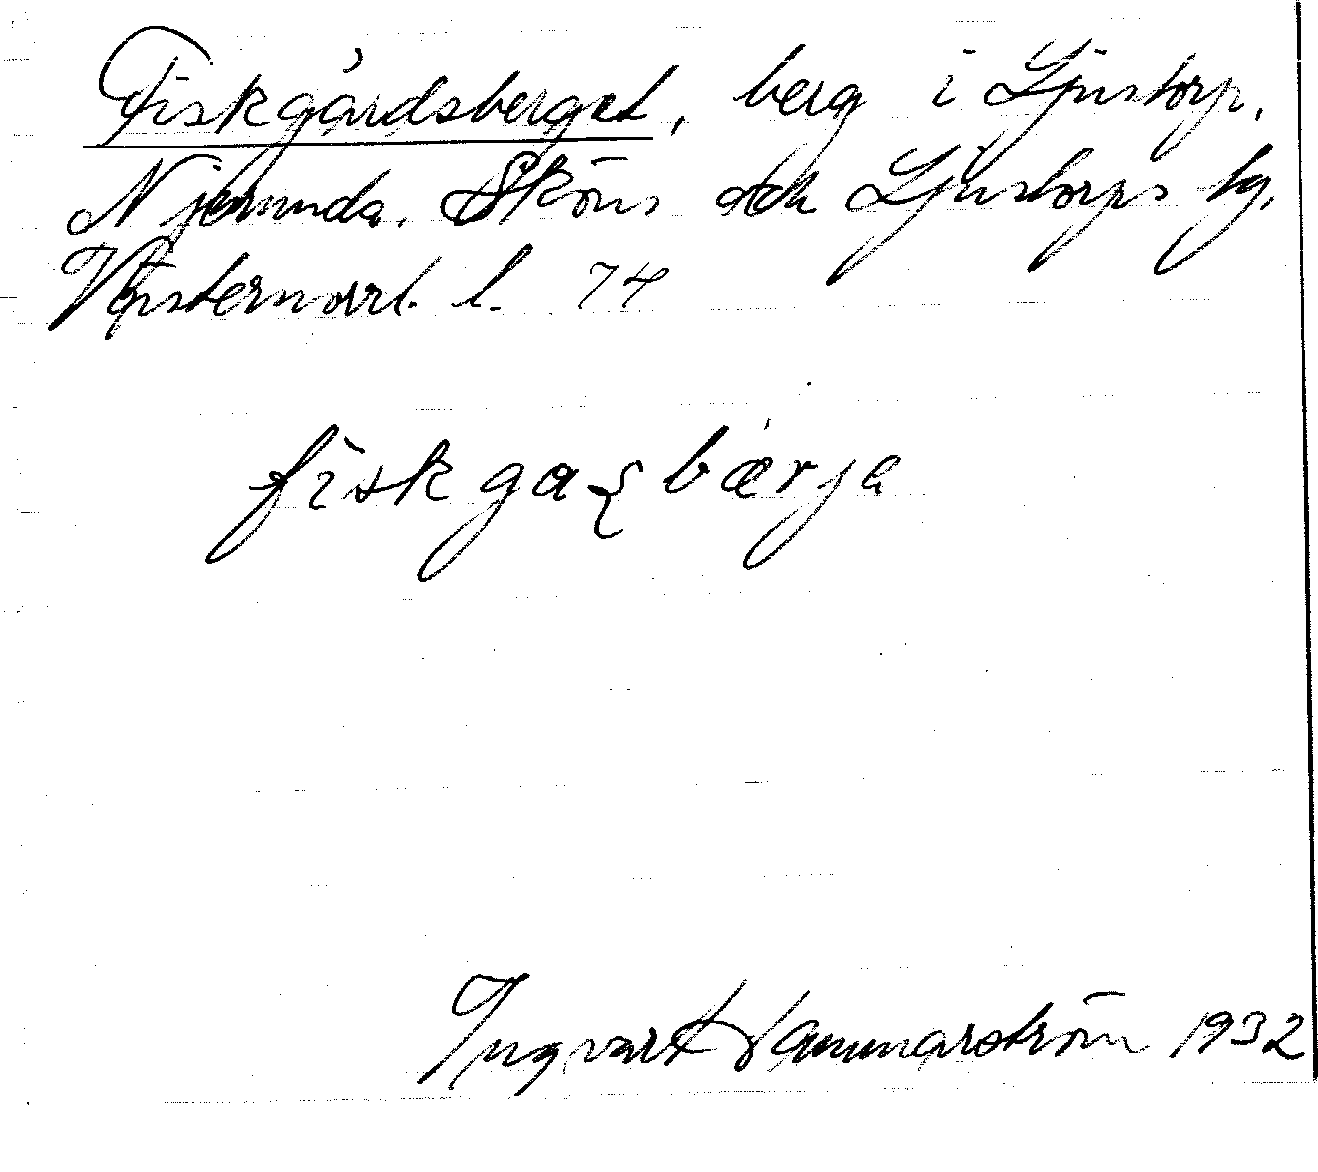 Fiskgårdsberget, berg i Ljustorp,
Njurunda, Sköns och Ljustorps tg,
Västernorrl. l. 74
fiskgaʂbærja
Ingvart Hammarström 1932